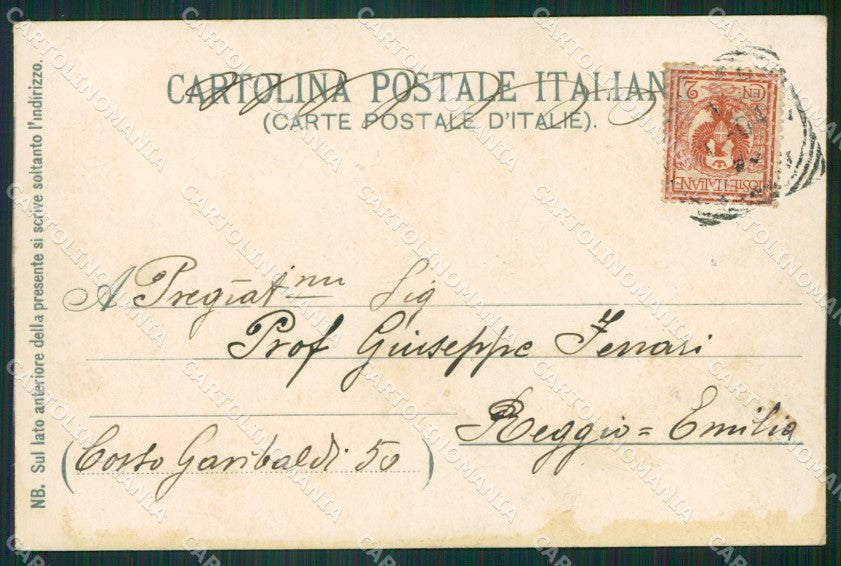 CARTOLINA POSTALE ITALIANA
(CARTE POSTALE D'ITALIE).
POSTE ITALIANE
CEN 2
NB. Sul lato anteriore della presente si scrive soltanto l'indirizzo.
A Pregiat.mo Sig
Prof Giuseppe Ferrari
Reggio = Emilia
(Corso Garibaldi 50)
CARTOLINOMANIA